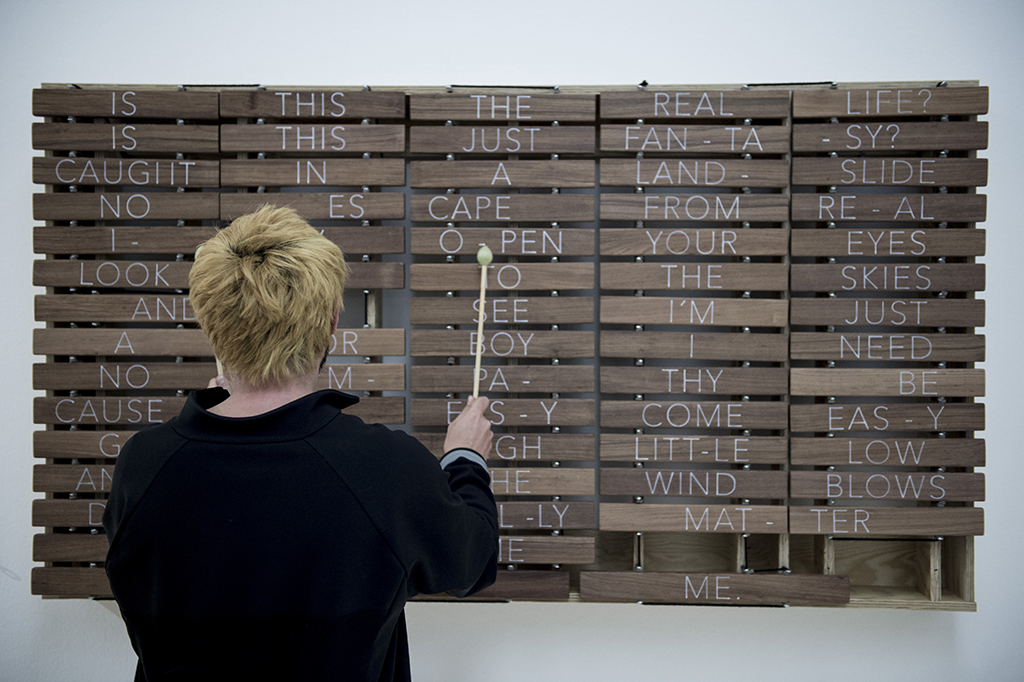 IS THIS THE REAL LIFE?
IS THIS THE JUST FAN - TA - SY?
CAUGHT IN A LAND - SLIDE
NO ES CAPE FROM RE - AL
I - O - PEN YOUR EYES
LOOK TO THE SKIES
AND SEE I'M JUST
A BOY I NEED
NO M - PA - THY BE
CAUSE EAS - Y COME EAS - Y
LITT-LE LOW
WIND BLOWS
L - LY MAT - TER
ME.